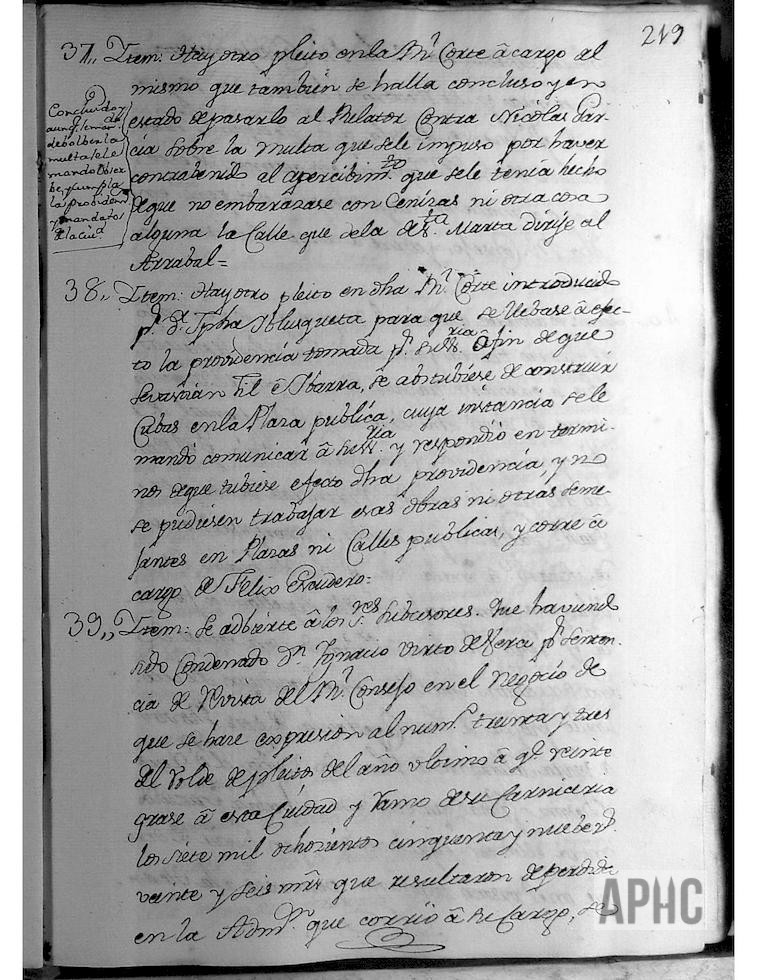 219
37,, Ittem: Hay otro pleito en la Rl. Corte â cargo del
mismo que tambien se halla concluso y en
estado de pasarlo al Relator Contra Nicolas Gar-
cia sobre la multa que sele impuso por haver
contrabenido al apercibimto. que sele tenia hecho
de que no embarazase con Cenizas ni otra cosa
alguna la Calle que de la de Sta. Marta dirije al
Arrabal=
Concluido y
aunq. se mandó
debolber la
multa se le
mando obser
be, y cumpla
la providena
y mandatos
de la Ciud.
38,, Ittem: Hay otro pleito en dha Rl. Corte introducido
pr. Dn. Jpha Iblusqueta para que se llebase â efec-
to la providencia tomada pr. su Sria. â fin de que
Sevastian Gil è Ibarra, se abstubiese de construir
Cubas en la Plaza publica, cuya instancia sele
mandó comunicar â su Sria. y respondió en termi-
nos de que tubiese efecto dha providencia, y no
se pudiesen trabajar esas obras ni otras seme-
jantes en Plazas ni Calles publicas, y corre â
cargo de Felix Escudero=
39,, Ittem: se adbierte â los Sres. Subcesores. Que haviendo
sido Condenado Dn. Ignacio Virto de Vera pr. senten-
cia de Revista del Rl. Consejo en el negocio de
que se haze expresion al numo. treinta y tres
del Rolde de pleitos del año ultimo â qe. reinte
grase â esta Ciudad y Ramo de su Carniceria
los siete mil ochozientos cinquenta y nueve rs.
veinte y seis mrs. que resultaron de perdida
en la Admon. que corrió â su Cargo, se
APHC